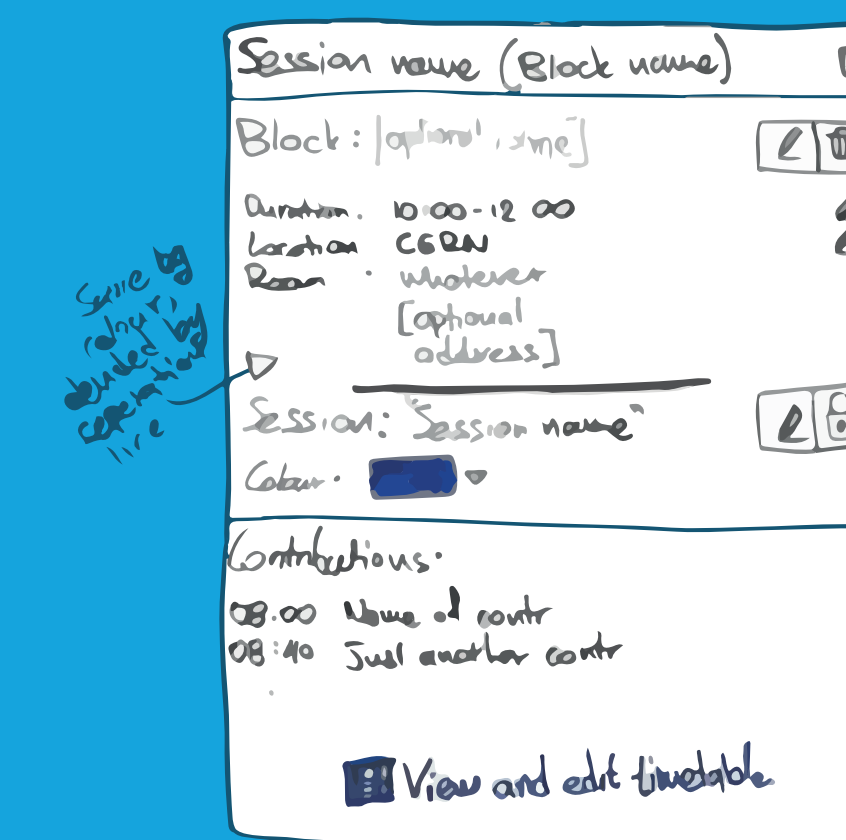 Session name (Block name)
Block: [optional name]
Duration. 10:00-12 00
Location CERN
Room : whatever
[optional
address]
Same bg
colour,
divided by
separation
line
Session: "Session name"
Colour.
Contributions:
08:00 Name of contr
08:40 Just another contr
View and edit timetable